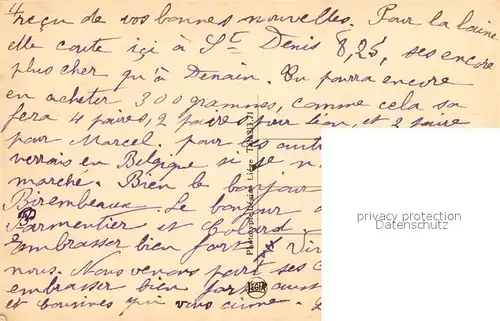 4/
reçu de vos bonnes nouvelles. Pour la laine
elle coute içi à St Denis 8,25, ses encore
plus cher qu'à Denain. Tu pourra encore
en acheter 300 grammes, comme cela sa
fera 4 paires, 2 paire pour Léon, et 2 paire
pour Marcel. pour les autr
verrais en Belgique si se n
marché. Bien le bonjour
Birembeaux. Le bonjour
Parmentier et
embrasser bien fort
nous. Nous venons part ses
embrasser bien fort aussi
et cousines qui vous aime.
Liège
LEGIA
privacy protection
Datenschutz